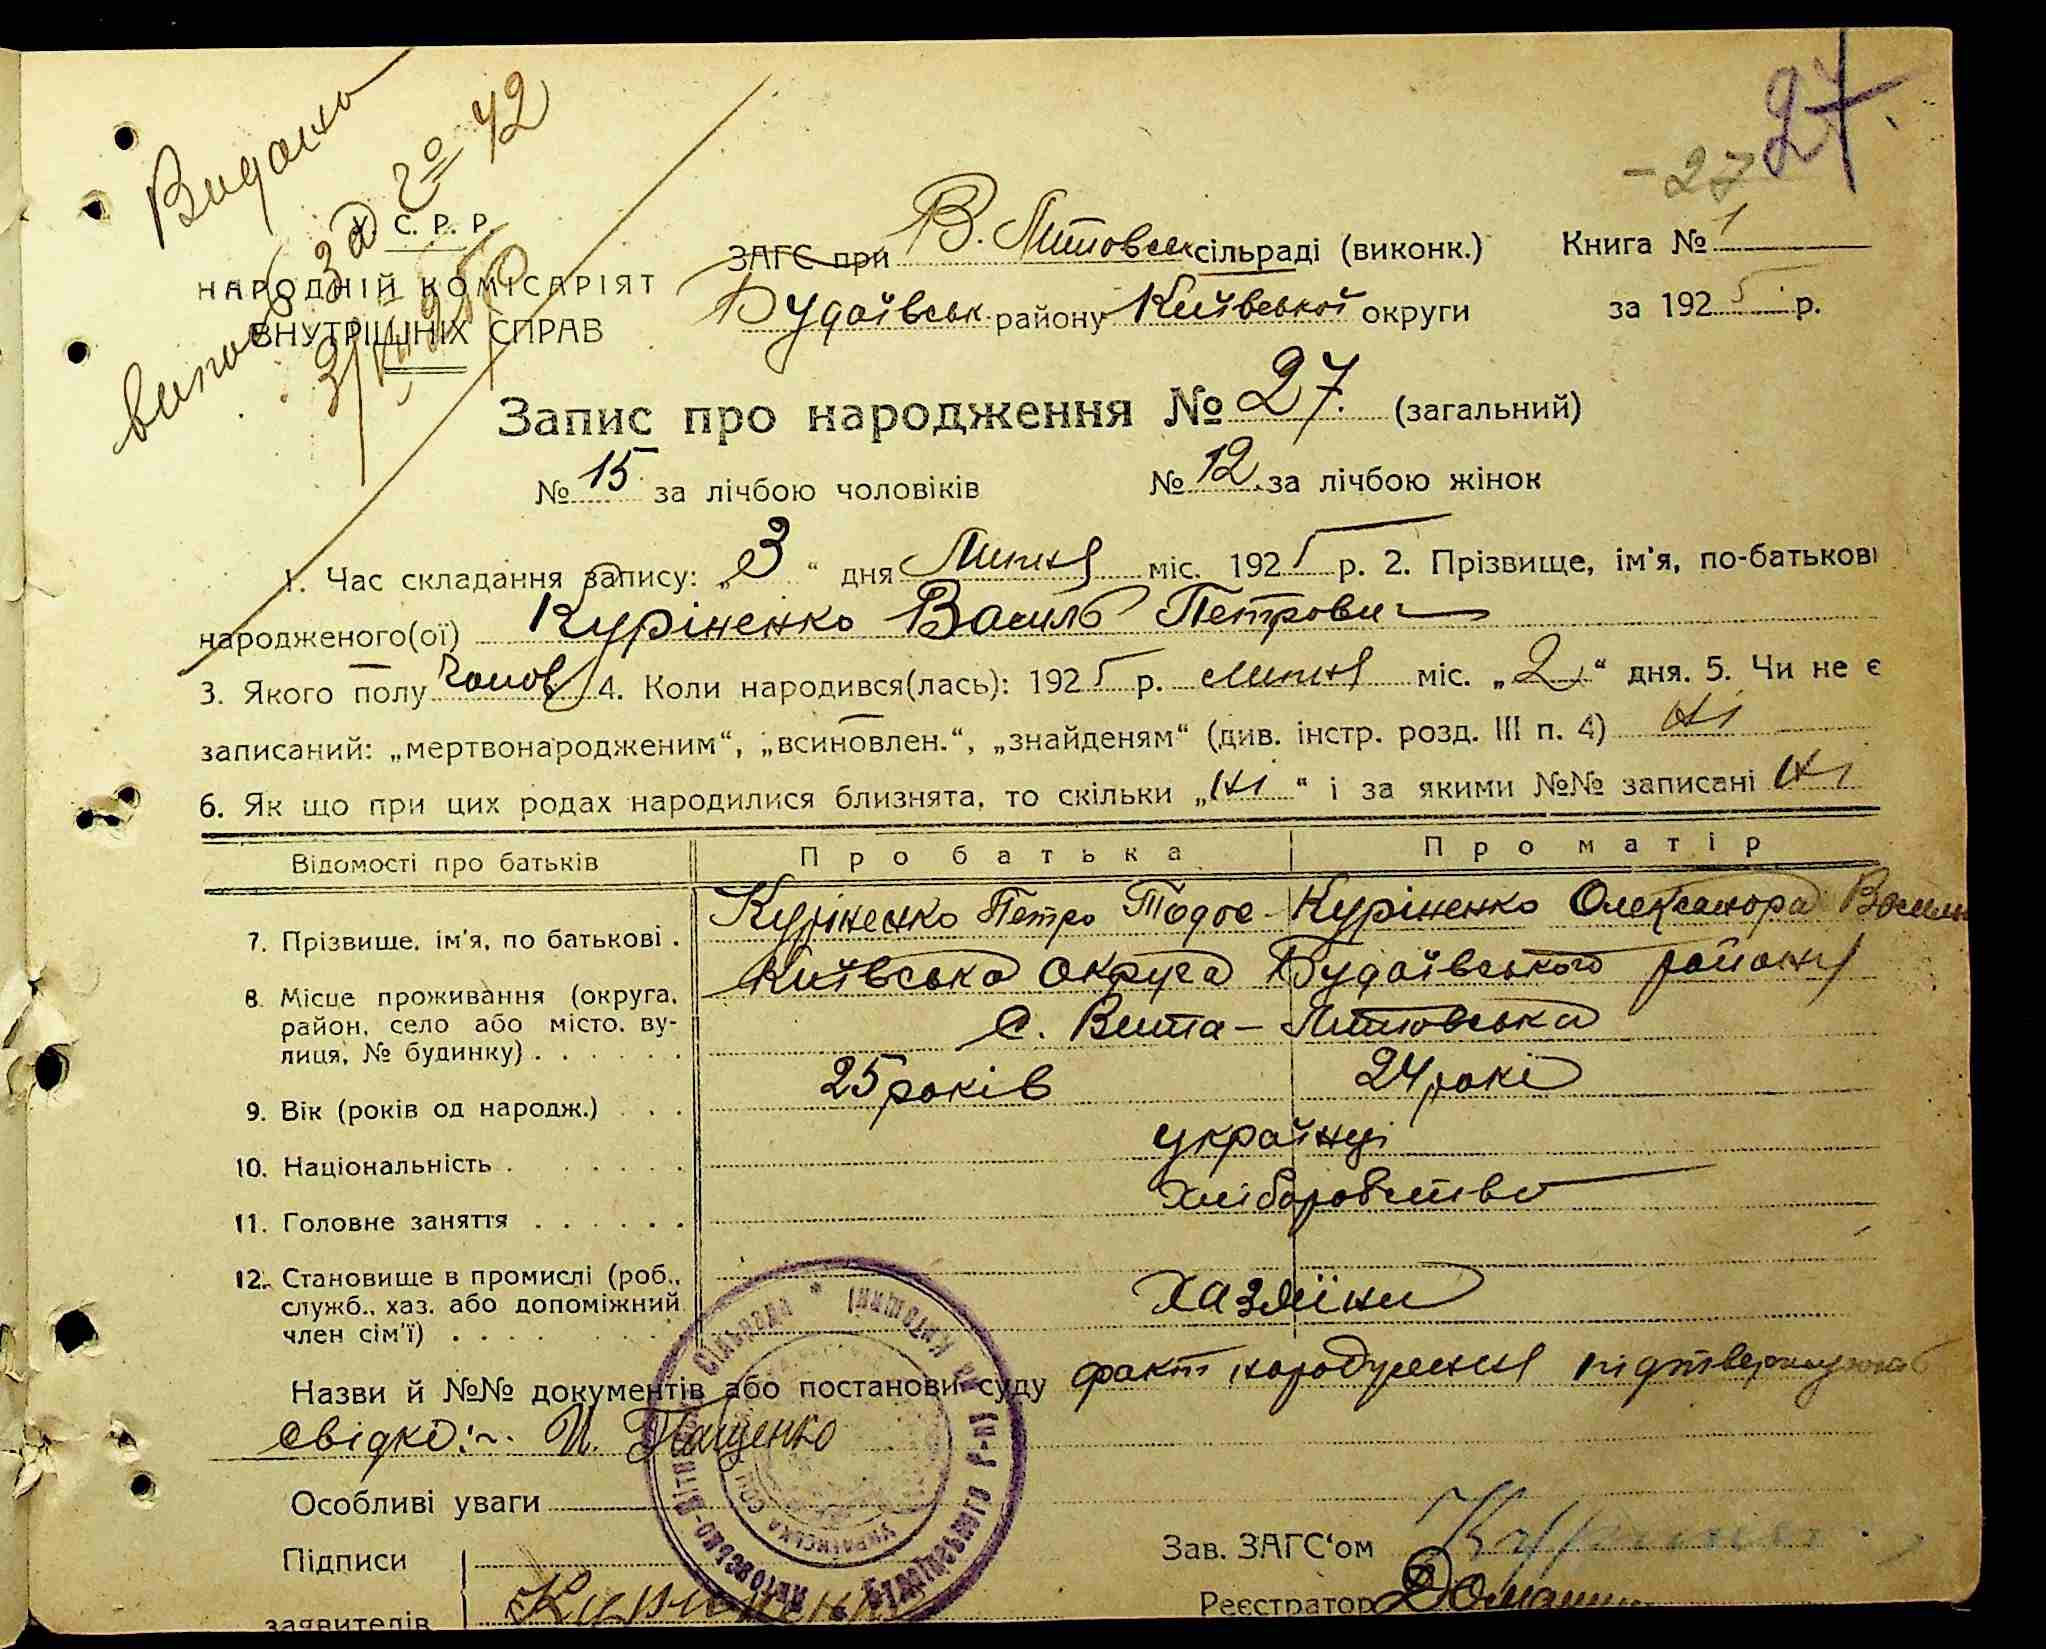 27.
- 27
Видано
за 72
С. Р. Р.
НАРОДНІЙ КОМІСАРІЯТ
ВНУТРІШНІХ СПРАВ
ЗАГС при В. Литовськ сільраді (виконк.)
Книга № 1
Будаївськ району Київської округи
за 1925 р.
Запис про народження № 27. (загальний)
№ 15 за лічбою чоловіків
№ 12 за лічбою жінок
1. Час складання запису: „3“ дня Липня міс. 1925 р. 2. Прізвище, ім'я, по-батькові
народженого(ої) Куріненко Василь Петрович
3. Якого полу Чолов 4. Коли народився(лась): 1925 р. липня міс. „2“ дня. 5. Чи не є
записаний: „мертвонародженим“, „всиновлен.“, „знайденям“ (див. інстр. розд. III п. 4) ні
6. Як що при цих родах народилися близнята, то скільки „ні“ і за якими №№ записані ні
Відомості про батьків
Про батька
Про матір
7. Прізвище, ім'я, по батькові .
Куріненко Петро Тодос-
Куріненко Олександра Васил
8. Місце проживання (округа,
район, село або місто, ву-
лиця, № будинку) . . . . . .
Київська округа Будаївського району
с. Вита-Литовська
9. Вік (років од народж.) . . .
25 років
24 рокі
10. Національність . . . . . . .
українці
11. Головне заняття . . . . . .
хліборобство
12. Становище в промислі (роб.,
служб., хаз. або допоміжний
член сім'ї) . . . . . .
хазяїни
Назви й №№ документів або постанови суду факт народження підтверджуют
свідко:~ И. Пащенко
Особливі уваги
Підписи
заявителів
Куриненко
Зав. ЗАГС'ом
Реєстратор